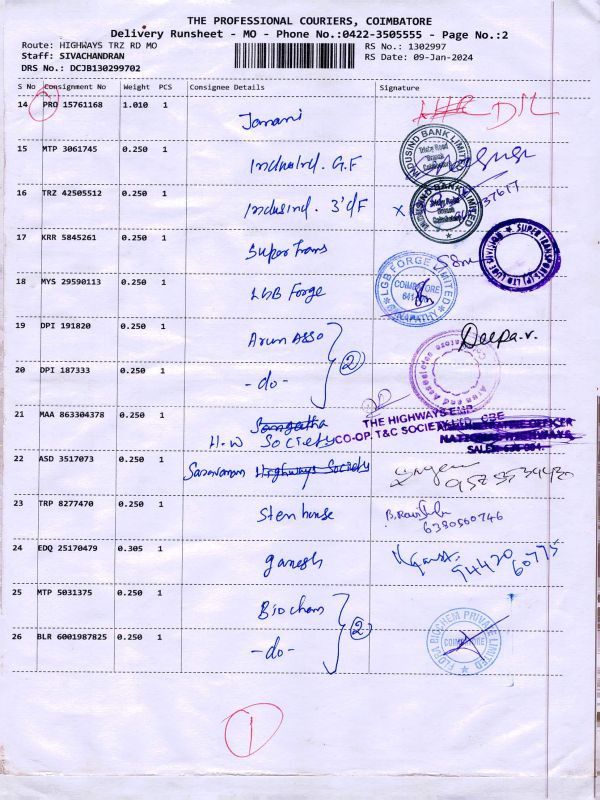 THE PROFESSIONAL COURIERS, COIMBATORE
Delivery Runsheet - MO - Phone No.:0422-3505555 - Page No.:2
Route: HIGHWAYS TRZ RD MO
RS No.: 1302997
Staff: SIVACHANDRAN
RS Date: 09-Jan-2024
DRS No.: DCJB130299702
S No Consignment No Weight PCS Consignee Details Signature
14 PRO 15761168 1.010 1 Janani
15 MTP 3061745 0.250 1 Indusind. G.F
INDUSIND BANK LIMITED
16 TRZ 42505512 0.250 1 Indusind. 3'd F X
INDUSIND BANK LIMITED
17 KRR 5845261 0.250 1 Super Trans
SUPER TRANSPORTS (P) LTD
18 MYS 29590113 0.250 1 LGB Forge
LGB FORGE LIMITED COIMBATORE GANAPATHY
19 DPI 191820 0.250 1 Arun Asso Deepa.v.
20 DPI 187333 0.250 1 -do- 2
Arun and Associates
21 MAA 863304378 0.250 1 Sangatha
H.W Society
THE HIGHWAYS EMP.
CO-OP. T&C SOCIETY
22 ASD 3517073 0.250 1 Saravanan Highways Society
23 TRP 8277470 0.250 1 Sten house
6380560746
24 EDQ 25170479 0.305 1 ganesh
94420 60775
25 MTP 5031375 0.250 1 Biochem
26 BLR 6001987825 0.250 1 -do- 2
FLORA BIOCHEM PRIVATE LIMITED COIMBATORE
1